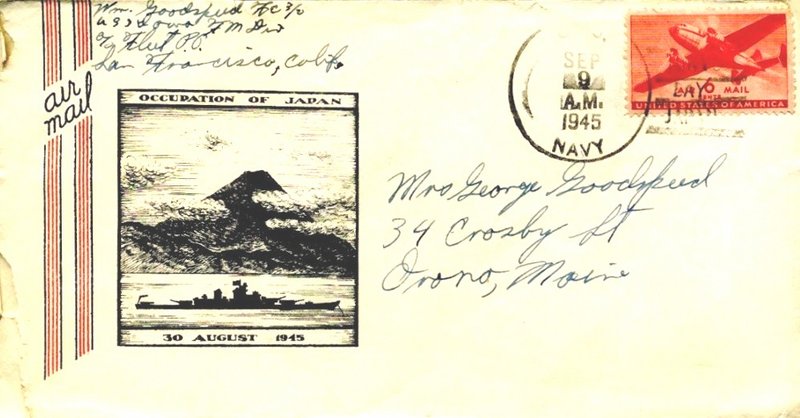 Wm. Goodspeed FC 3/c
USS Iowa FM Div
℅ Fleet P.O.
San Francisco, Calif.
air
mail
OCCUPATION OF JAPAN
30 AUGUST 1945
SEP
9
A.M.
1945
NAVY
AIR MAIL
UNITED STATES OF AMERICA
Mrs George Goodspeed
34 Crosby St
Orono, Maine